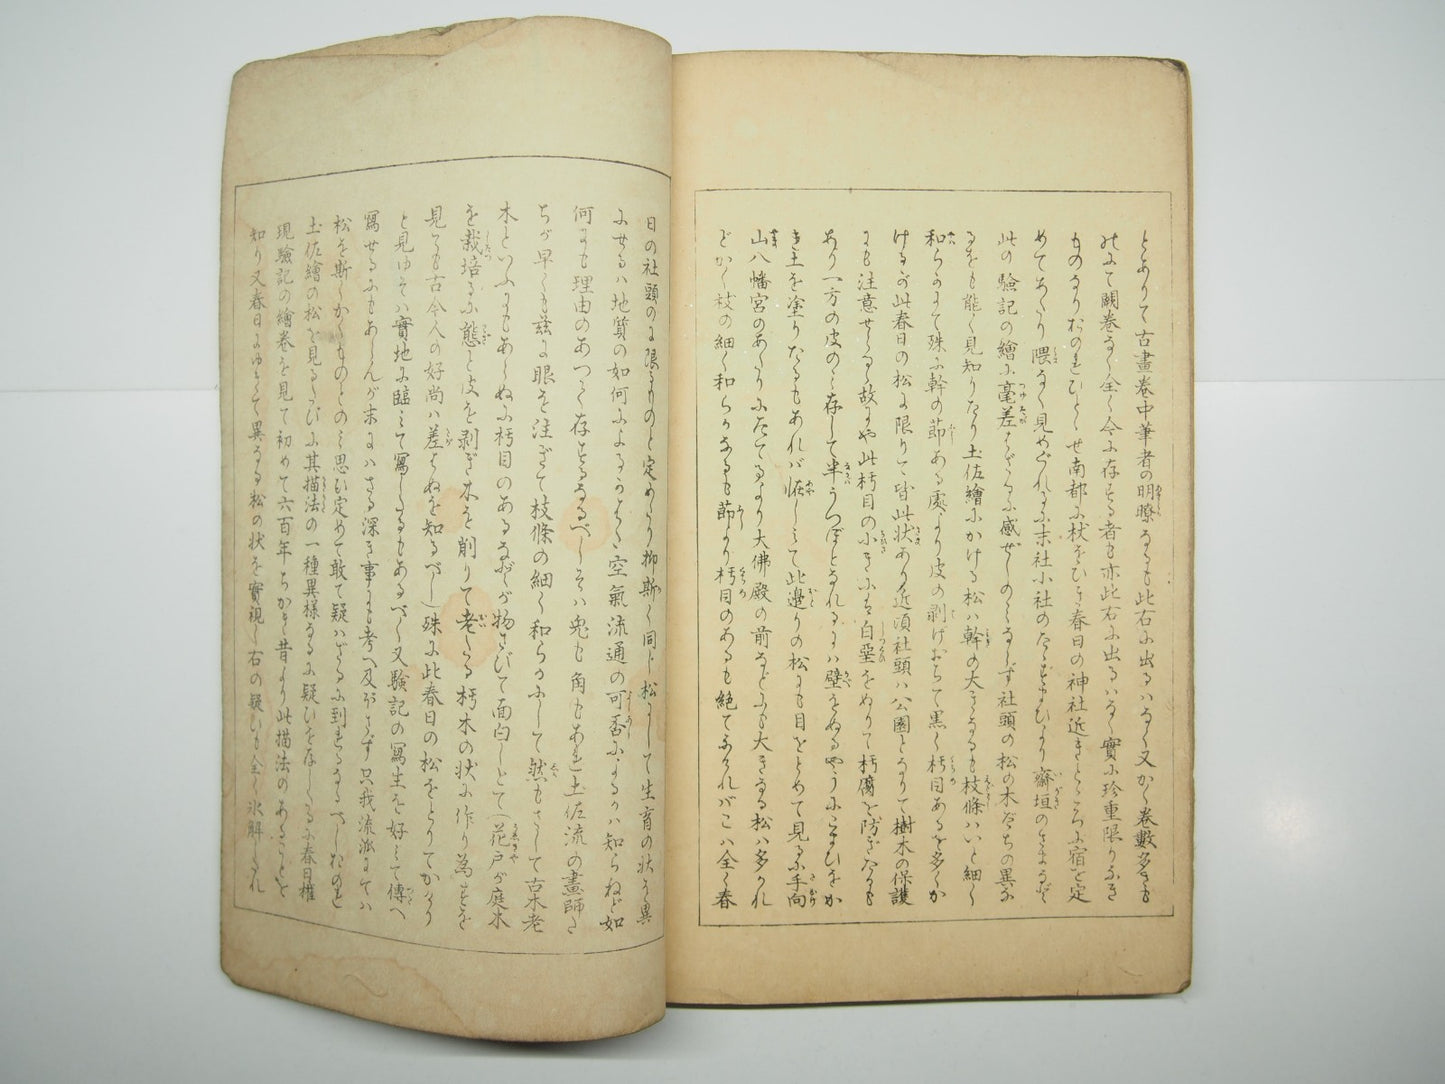 とありて古畫卷中筆者の明瞭なるも此右に出るハなく又かく卷數多きも
のにて闕卷なく全く今に存する者も亦此右に出るハなく實に珍重限りなき
ものなりおのれひとゝせ南都に杖をひき春日の神社近きところに宿を定
めてあたり隈なく見めぐれるに末社小社のたゝずまひより齋垣のさまなど
此の驗記の繪に毫差はざるに感ぜしのミならず社頭の松の木だちの異な
るをも能く見知りたり土佐繪にかける松ハ幹の大きなるも枝條ハいと細く
和らかにて殊に幹の節ある處より皮の剥げおちて黒く朽目あるを多くか
けるが此春日の松に限りて皆此状あり近頃社頭ハ公園となりて樹木の保護
にも注意せらるゝ故にや此朽目の小きにハ白堊をぬりて朽腐を防ぎたるも
あり一方の皮のミ存して半うつぼとなれるにハ壁をぬるやうにこまひをか
き土を塗りたるもあれバ恠しミて此邊りの松にも目をとめて見るに手向
山八幡宮のあたりにたてるより大佛殿の前なとにも大きなる松ハ多かれ
どかく枝の細く和らかなるも節より朽目のあるも絶てなけれバこハ全く春
日の社頭のに限るものと定めたり抑斯く同じ松にして生育の状かく異
にせるハ地質の如何によるかはた空氣流通の可否によるかハ知らねど如
何にも理由のあつて存するなるべしそハ兎も角もあれ土佐流の畫師た
ちが早くも玆に眼を注ぎて枝條の細く和らかにして然もさして古木老
木といふにもあらぬに朽目のあるなどが物さびて面白しとて（花戸が庭木
を栽培るに態と皮を剥ぎ木を削りて老たる朽木の状に作り為すを
見ても古今人の好尚ハ差はぬを知るべし）殊に此春日の松をとりてかけり
と見ゆそハ實地に臨ミて寫したるもあるべく又驗記の寫生を好ミて傳へ
寫せるにもあらんが末にハさる深き事にも考へ及ばず只我流派にてハ
松を斯くかくものとのミ思ひ定めて敢て疑ハざるに到れるなるべしおのれ
土佐繪の松を見るたびに其描法の一種異様なるに疑ひを存したるに春日權
現驗記の繪卷を見て初めて六百年ちかき昔より此描法のあることを
知り又春日にゆきて異なる松の状を實視し右の疑ひも全く氷解したれ